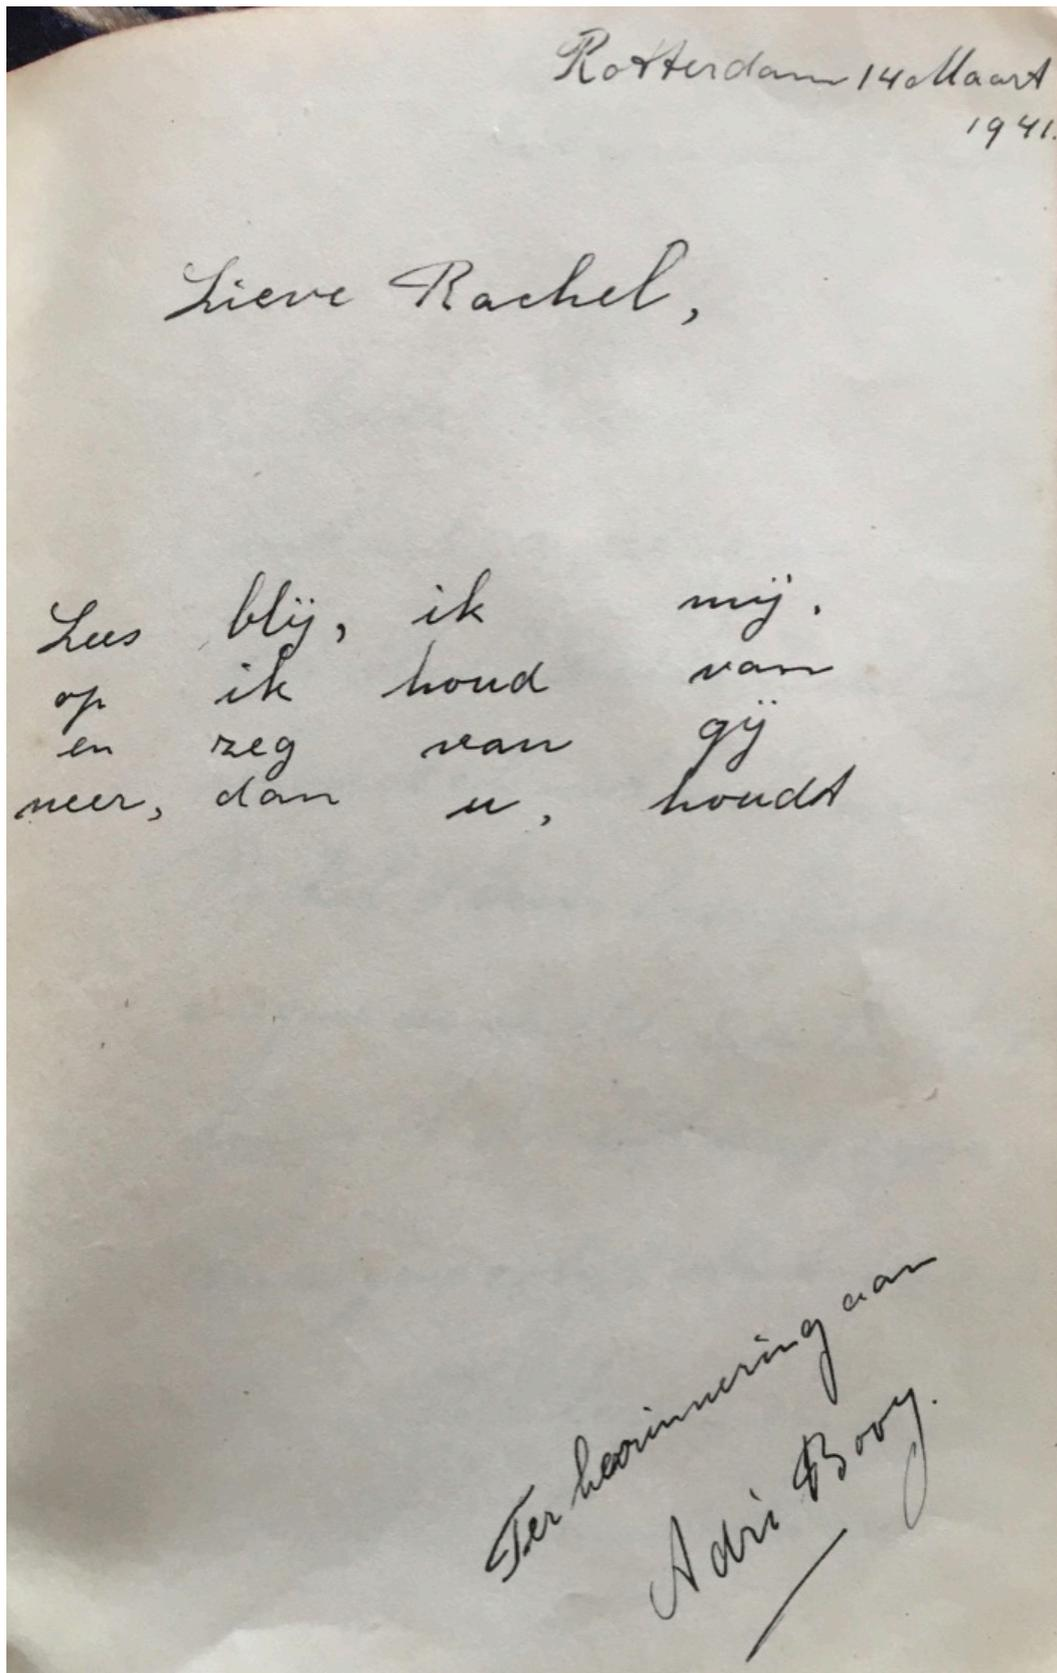 Rotterdam 14 Maart
1941.
Lieve Rachel,
Lees blij, ik mij.
op ik houd van
en zeg van gij
neer, dan u, houdt
Ter herinnering aan
Adri Booy.